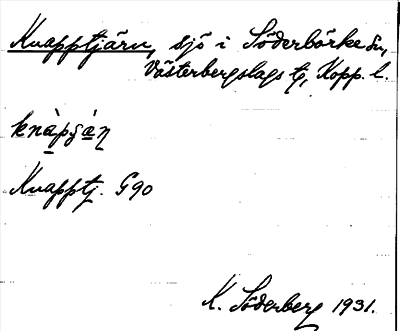 Knapptjärn, sjö i Söderbärke sn,
Västerbergslags tg, Kopp. l.
knàpʂä̀ɳ
Knapptj. G90
K. Söderberg 1931.